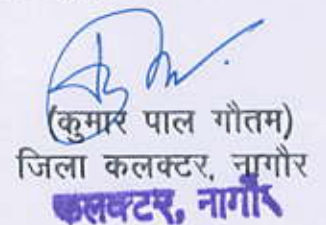 (कुमार पाल गौतम)
जिला कलक्टर, नागौर
कलक्टर, नागौर